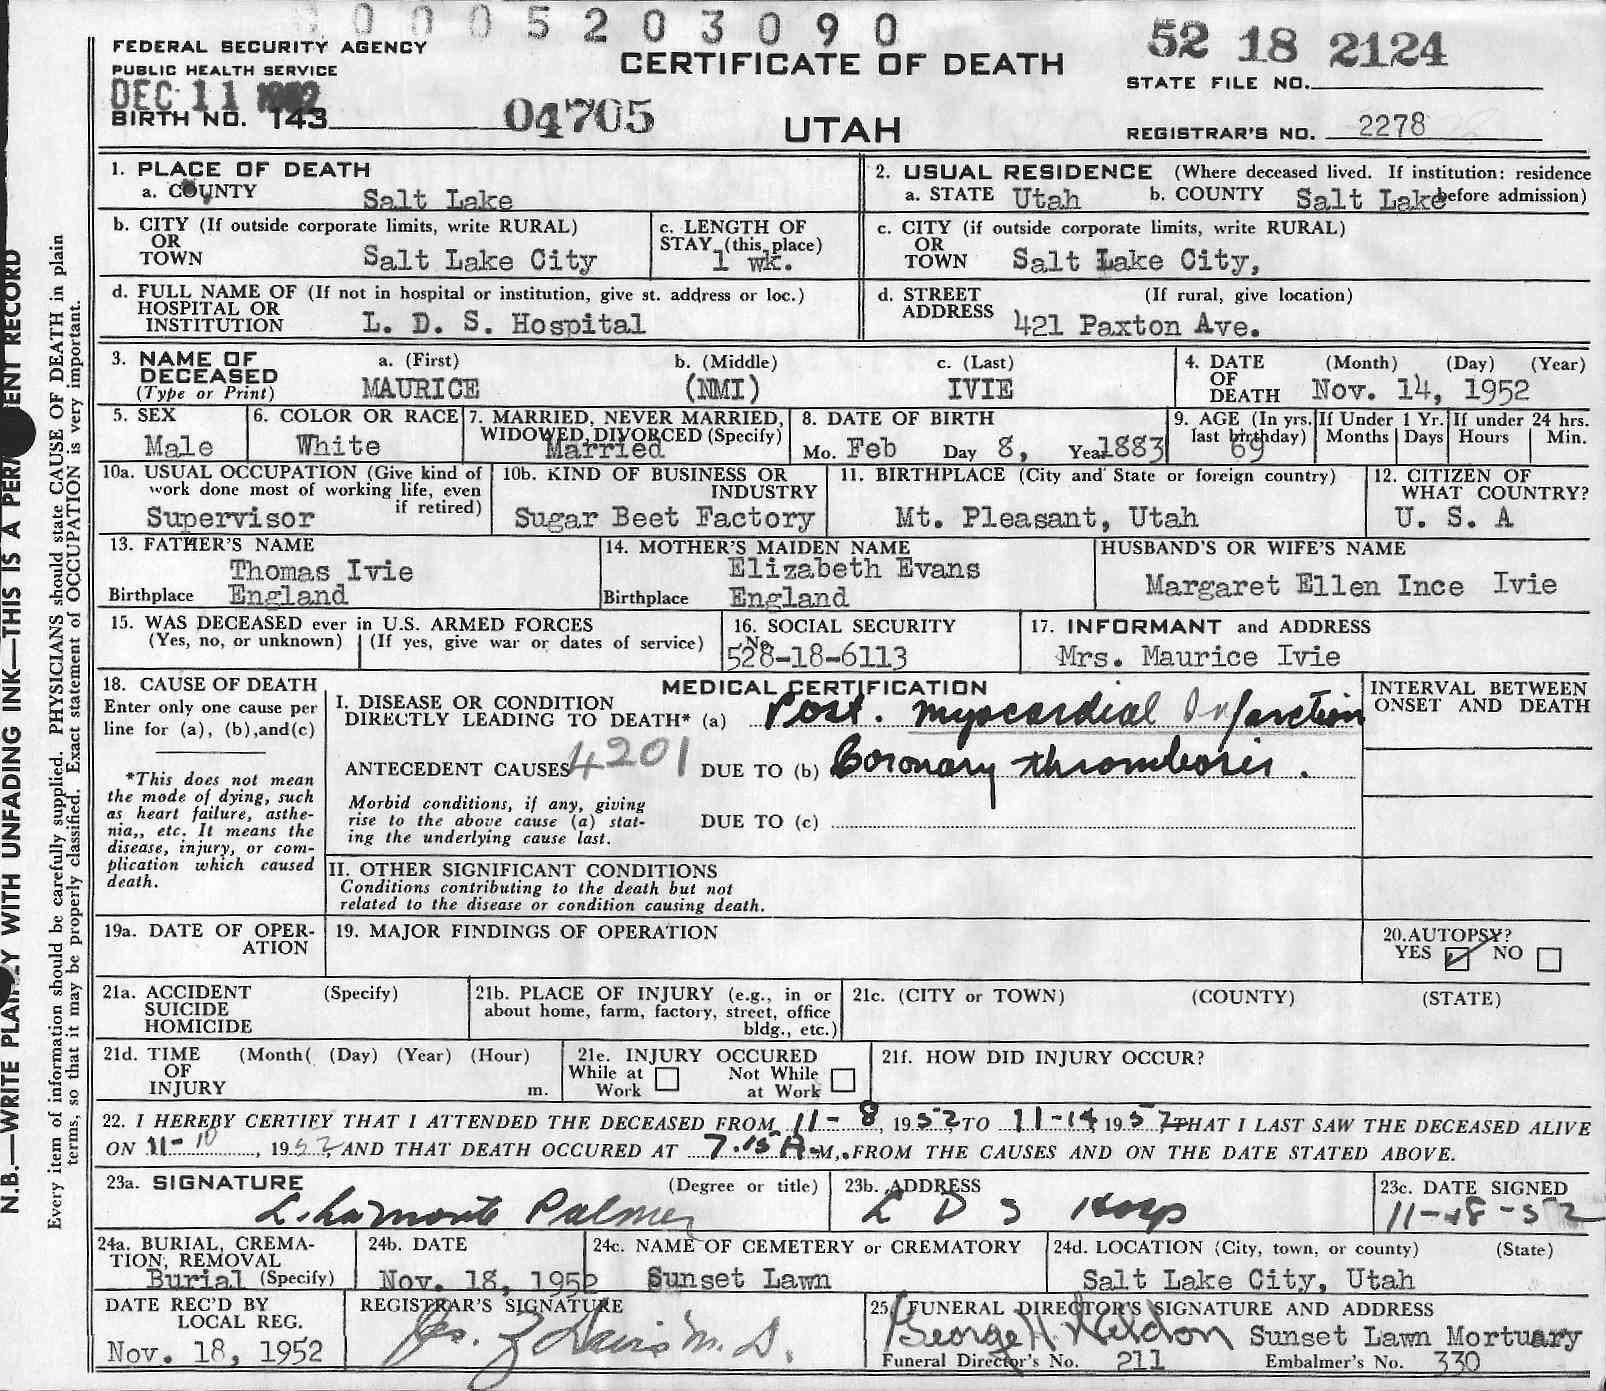 0005203090
FEDERAL SECURITY AGENCY
PUBLIC HEALTH SERVICE
DEC 11 1952
BIRTH NO. 143 04705
CERTIFICATE OF DEATH
UTAH
52 18 2124
STATE FILE NO.
REGISTRAR'S NO. 2278
1. PLACE OF DEATH
a. COUNTY Salt Lake
2. USUAL RESIDENCE (Where deceased lived. If institution: residence before admission)
a. STATE Utah b. COUNTY Salt Lake
b. CITY (If outside corporate limits, write RURAL)
OR
TOWN Salt Lake City
c. LENGTH OF
STAY (this place)
1 wk.
c. CITY (if outside corporate limits, write RURAL)
OR
TOWN Salt Lake City,
d. FULL NAME OF (If not in hospital or institution, give st. address or loc.)
HOSPITAL OR
INSTITUTION L. D. S. Hospital
d. STREET (If rural, give location)
ADDRESS 421 Paxton Ave.
3. NAME OF
DECEASED
(Type or Print)
a. (First) b. (Middle) c. (Last)
MAURICE (NMI) IVIE
4. DATE (Month) (Day) (Year)
OF
DEATH Nov. 14, 1952
5. SEX
Male
6. COLOR OR RACE
White
7. MARRIED, NEVER MARRIED,
WIDOWED, DIVORCED (Specify)
Married
8. DATE OF BIRTH
Mo. Feb Day 8, Year 1883
9. AGE (In yrs. last birthday)
69
If Under 1 Yr.
Months Days
If under 24 hrs.
Hours Min.
10a. USUAL OCCUPATION (Give kind of
work done most of working life, even
if retired)
Supervisor
10b. KIND OF BUSINESS OR
INDUSTRY
Sugar Beet Factory
11. BIRTHPLACE (City and State or foreign country)
Mt. Pleasant, Utah
12. CITIZEN OF
WHAT COUNTRY?
U. S. A
13. FATHER'S NAME
Thomas Ivie
Birthplace England
14. MOTHER'S MAIDEN NAME
Elizabeth Evans
Birthplace England
HUSBAND'S OR WIFE'S NAME
Margaret Ellen Ince Ivie
15. WAS DECEASED ever in U.S. ARMED FORCES
(Yes, no, or unknown) (If yes, give war or dates of service)
16. SOCIAL SECURITY
No.
528-18-6113
17. INFORMANT and ADDRESS
Mrs. Maurice Ivie
18. CAUSE OF DEATH
Enter only one cause per
line for (a), (b), and (c)
*This does not mean
the mode of dying, such
as heart failure, asthe-
nia,, etc. It means the
disease, injury, or com-
plication which caused
death.
MEDICAL CERTIFICATION
I. DISEASE OR CONDITION
DIRECTLY LEADING TO DEATH* (a) Post. myocardial Infarction
ANTECEDENT CAUSES 4201 DUE TO (b) Coronary thrombosis.
Morbid conditions, if any, giving
rise to the above cause (a) stat-
ing the underlying cause last.
DUE TO (c)
INTERVAL BETWEEN
ONSET AND DEATH
II. OTHER SIGNIFICANT CONDITIONS
Conditions contributing to the death but not
related to the disease or condition causing death.
19a. DATE OF OPER-
ATION
19. MAJOR FINDINGS OF OPERATION
20. AUTOPSY?
YES NO
21a. ACCIDENT (Specify)
SUICIDE
HOMICIDE
21b. PLACE OF INJURY (e.g., in or
about home, farm, factory, street, office
bldg., etc.)
21c. (CITY or TOWN) (COUNTY) (STATE)
21d. TIME (Month( (Day) (Year) (Hour)
OF
INJURY m.
21e. INJURY OCCURED
While at Work Not While at Work
21f. HOW DID INJURY OCCUR?
22. I HEREBY CERTIFY THAT I ATTENDED THE DECEASED FROM 11-8, 1952, TO 11-14 1952 THAT I LAST SAW THE DECEASED ALIVE
ON 11-10, 1952, AND THAT DEATH OCCURED AT 7.15 A.M., FROM THE CAUSES AND ON THE DATE STATED ABOVE.
23a. SIGNATURE (Degree or title)
L. LaMonte Palmer
23b. ADDRESS
L D S Hosp
23c. DATE SIGNED
11-18-52
24a. BURIAL, CREMA-
TION, REMOVAL
Burial (Specify)
24b. DATE
Nov. 18, 1952
24c. NAME OF CEMETERY or CREMATORY
Sunset Lawn
24d. LOCATION (City, town, or county) (State)
Salt Lake City, Utah
DATE REC'D BY
LOCAL REG.
Nov. 18, 1952
REGISTRAR'S SIGNATURE
Davis M. D.
25. FUNERAL DIRECTOR'S SIGNATURE AND ADDRESS
George H. Sunset Lawn Mortuary
Funeral Director's No. 211 Embalmer's No. 330
N.B.—WRITE PLAINLY WITH UNFADING INK—THIS IS A PERMANENT RECORD
Every item of information should be carefully supplied. PHYSICIANS should state CAUSE OF DEATH in plain
terms, so that it may be properly classified. Exact statement of OCCUPATION is very important.